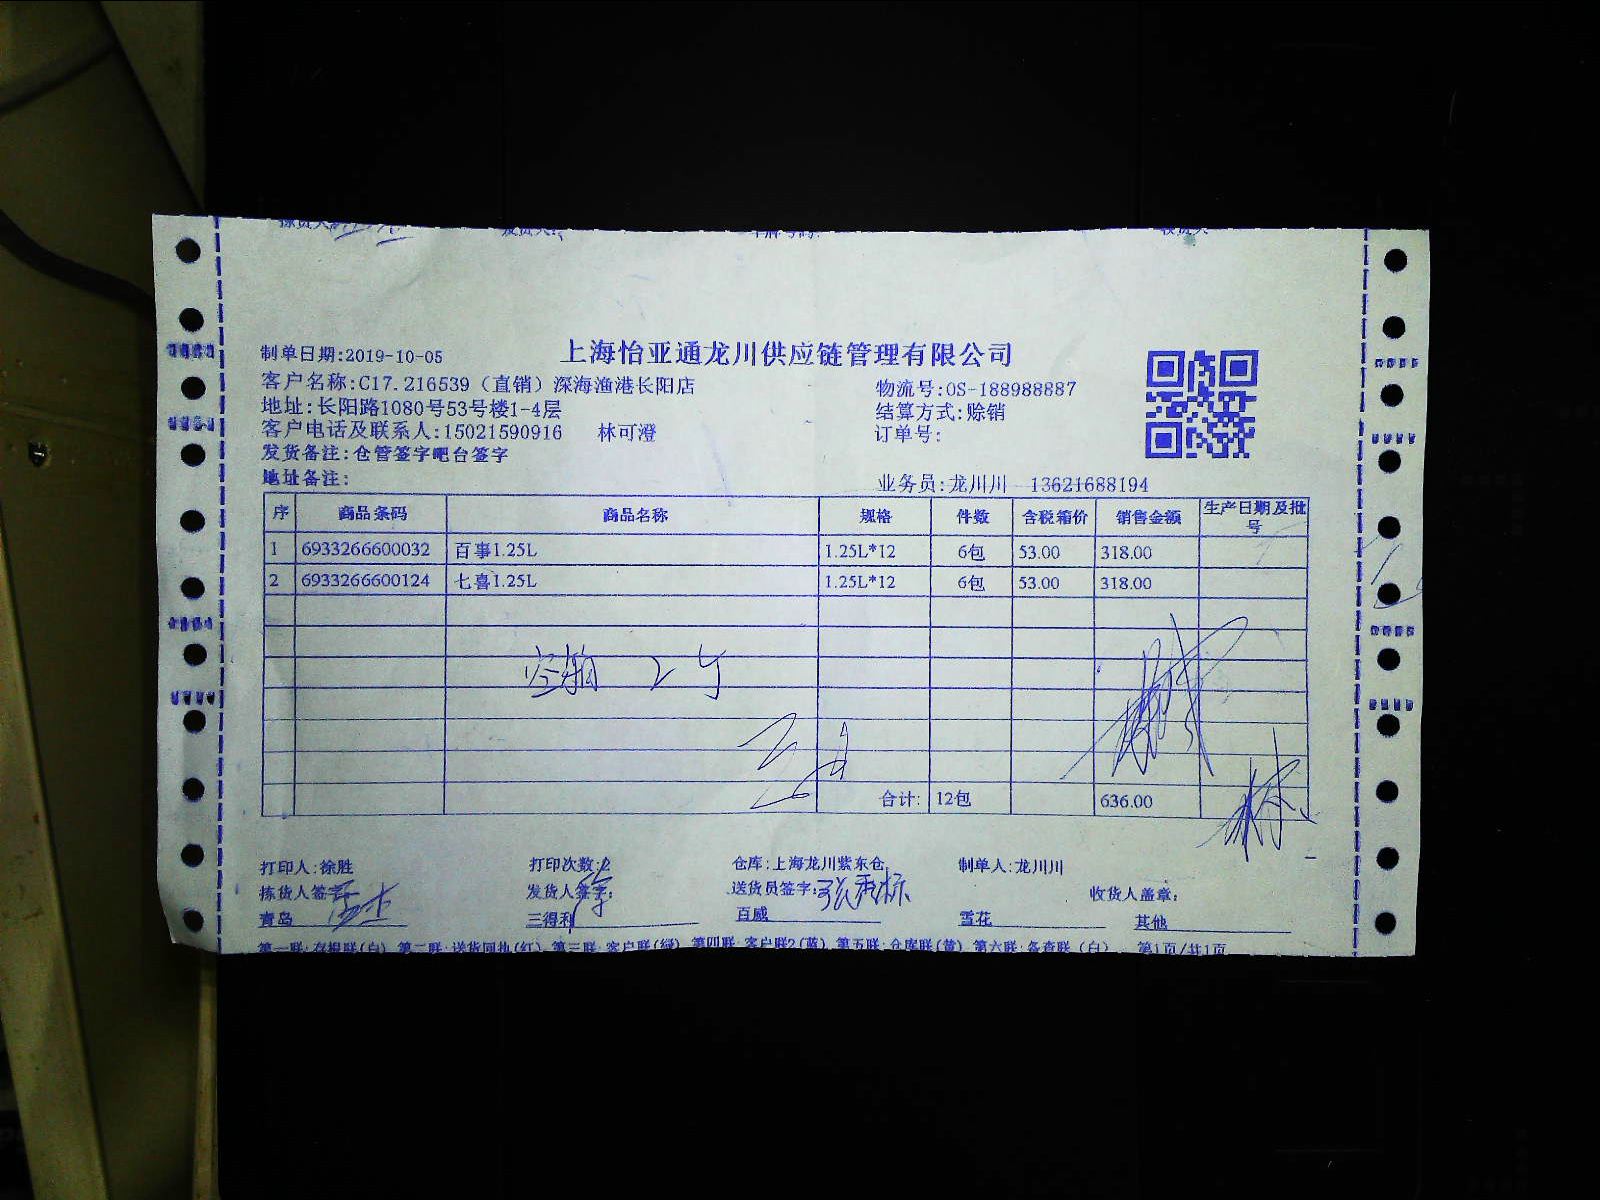 制单日期:2019-10-05
上海怡亚通龙川供应链管理有限公司
客户名称:C17.216539（直销）深海渔港长阳店
物流号:OS-188988887
地址:长阳路1080号53号楼1-4层
结算方式:赊销
客户电话及联系人:15021590916 林可澄
订单号:
发货备注:仓管签字吧台签字
地址备注:
业务员:龙川川 13621688194
序 商品条码 商品名称 规格 件数 含税箱价 销售金额 生产日期及批号
1 6933266600032 百事1.25L 1.25L*12 6包 53.00 318.00
2 6933266600124 七喜1.25L 1.25L*12 6包 53.00 318.00
合计: 12包 636.00
打印人:徐胜 打印次数:2 仓库:上海龙川紫东仓 制单人:龙川川
拣货人签字: 发货人签字: 送货员签字: 收货人盖章:
青岛 三得利 百威 雪花 其他
第一联:存根联(白) 第二联:送货回执(红) 第三联:客户联(绿) 第四联:客户联2(蓝) 第五联:仓库联(黄) 第六联:备查联(白) 第1页/共1页